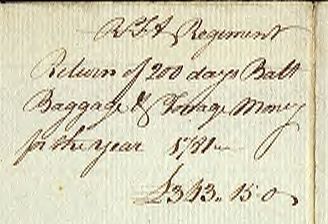 Regiment
Return of 200 days Batt
Baggage & Forage Money
for the Year 1781
£343.15.0